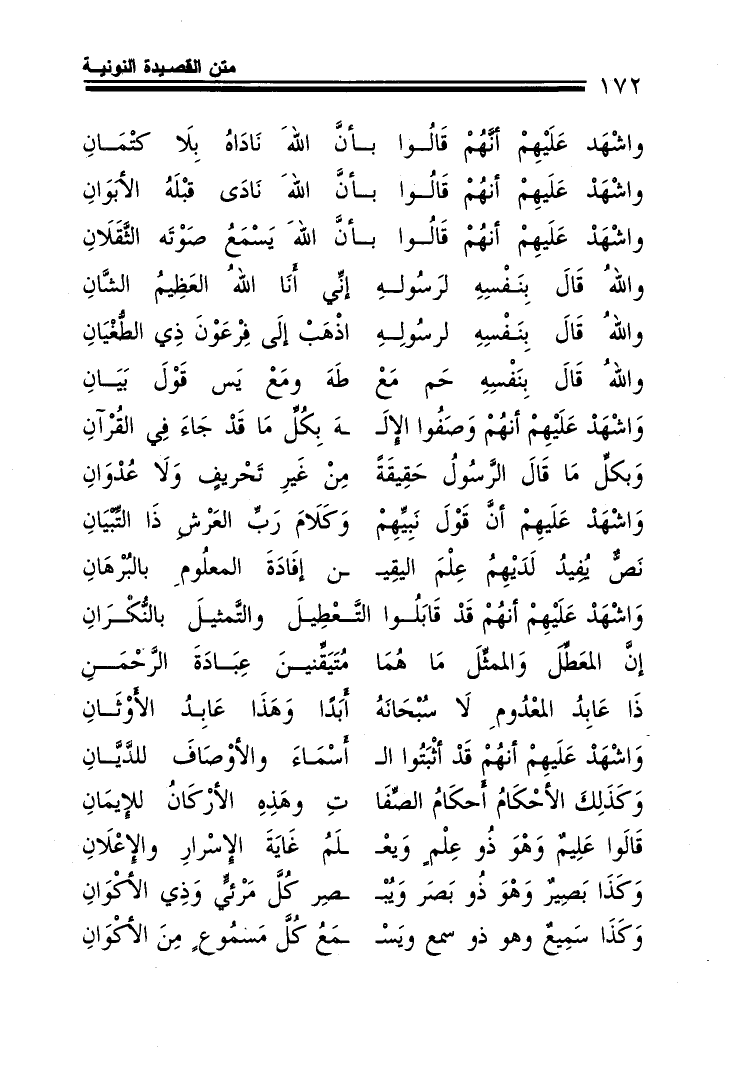 متن القصيدة النونية
١٧٢
واشْهَد عَلَيْهِمْ أنَّهُمْ قَالُـوا بـأنَّ اللهَ نَادَاهُ بِلَا كتْمَـانِ
واشْهَدْ عَلَيْهِمْ أنهُمْ قَالُـوا بـأنَّ اللهَ نَادَى قبْلَهُ الأبَوَانِ
واشْهَدْ عَلَيْهِمْ أنهُمْ قَالُـوا بـأنَّ اللهَ يَسْمَعُ صَوْتَه الثَّقَلَانِ
واللهُ قَالَ بِنَـفْسِهِ لرَسُولـهِ إنِّي أَنَا اللهُ العَظِيمُ الشَّانِ
واللهُ قَالَ بِنَـفْسِهِ لرسُولِـهِ اذْهَبْ إلَى فِرْعَوْنَ ذِي الطُّغْيَانِ
واللهُ قَالَ بِنَفْسِهِ حَم مَعْ طَهَ ومَعْ يَس قَوْلَ بَيَـانِ
وَاشْهَدْ عَلَيْهِمْ أنهُمْ وَصَفُوا الإلَـ ـهَ بِكُلِّ مَا قَدْ جَاءَ فِي القُرْآنِ
وَبكلِّ مَا قَالَ الرَّسُولُ حَقِيقَةً مِنْ غَيرِ تَحْريفٍ وَلَا عُدْوَانِ
وَاشْهَدْ عَلَيهِمْ أنَّ قَوْلَ نَبيِّهِمْ وَكَلَامَ رَبِّ العَرْشِ ذَا التِّبْيَانِ
نَصٌّ يُفِيدُ لَدَيْهِمُ عِلْمَ اليقِيـ ـن إفَادَةَ المعلُومِ بالبُرْهَانِ
وَاشْهَدْ عَلَيهِمْ أنهُمْ قَد قَابَلُـوا التَّـعْطِيلَ والتَّمثيلَ بالنُّكْـرَانِ
إنَّ المعَطِّلَ وَالممثِّلَ مَا هُمَا مُتَيَقِّنيـنَ عِبَـادَةَ الرَّحْمَـنِ
ذَا عَابِدُ المعْدُومِ لَا سُبْحَانَهُ أبَدًا وَهَذَا عَابِدُ الأوْثَـانِ
وَاشْهَدْ عَلَيهِمْ أنهُمْ قَدْ أثْبَتُوا الـ أسْمَـاءَ والأوْصَافَ للديَّـانِ
وَكَذَلِكَ الأحْكَامُ أحكَامُ الصِّفَا تِ وهَذِهِ الأرْكَانُ للإيمَانِ
قَالُوا عَلِيمٌ وَهْوَ ذُو عِلْمٍ وَيعْـ ـلَمُ غَايَةَ الإسْرارِ والإعْلَانِ
وَكَذَا بَصِيرٌ وَهْوَ ذُو بَصَر وَيُبْـ ـصِر كُلَّ مَرْئيٍّ وَذِي الأكْوَانِ
وَكَذَا سَمِيعٌ وهو ذو سمع ويَسْـ ـمَعُ كُلَّ مَسْمُوعٍ مِنَ الأكْوَانِ